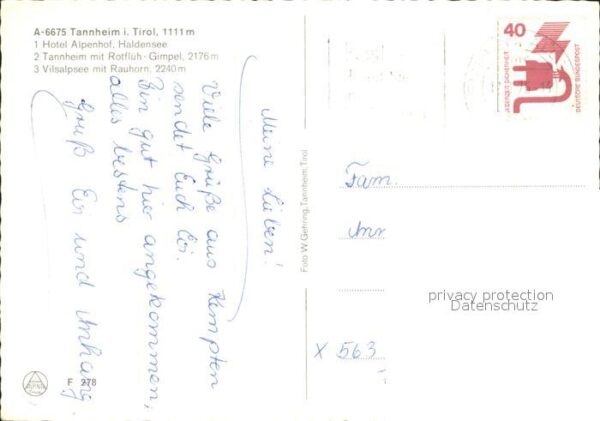 A-6675 Tannheim i. Tirol, 1111 m
1 Hotel Alpenhof, Haldensee
2 Tannheim mit Rotflüh - Gimpel, 2176 m
3 Vilsalpsee mit Rauhorn, 2240 m
Meine Lieben!
Viele Grüße aus Kempten
sendet Euch Evi.
Bin gut hier angekommen,
alles bestens
Gruß Evi und Anhang
F 278
Foto W. Gehring, Tannheim, Tirol
40
JEDERZEIT SICHERHEIT
DEUTSCHE BUNDESPOST
Fam.
privacy protection
Datenschutz
X 563